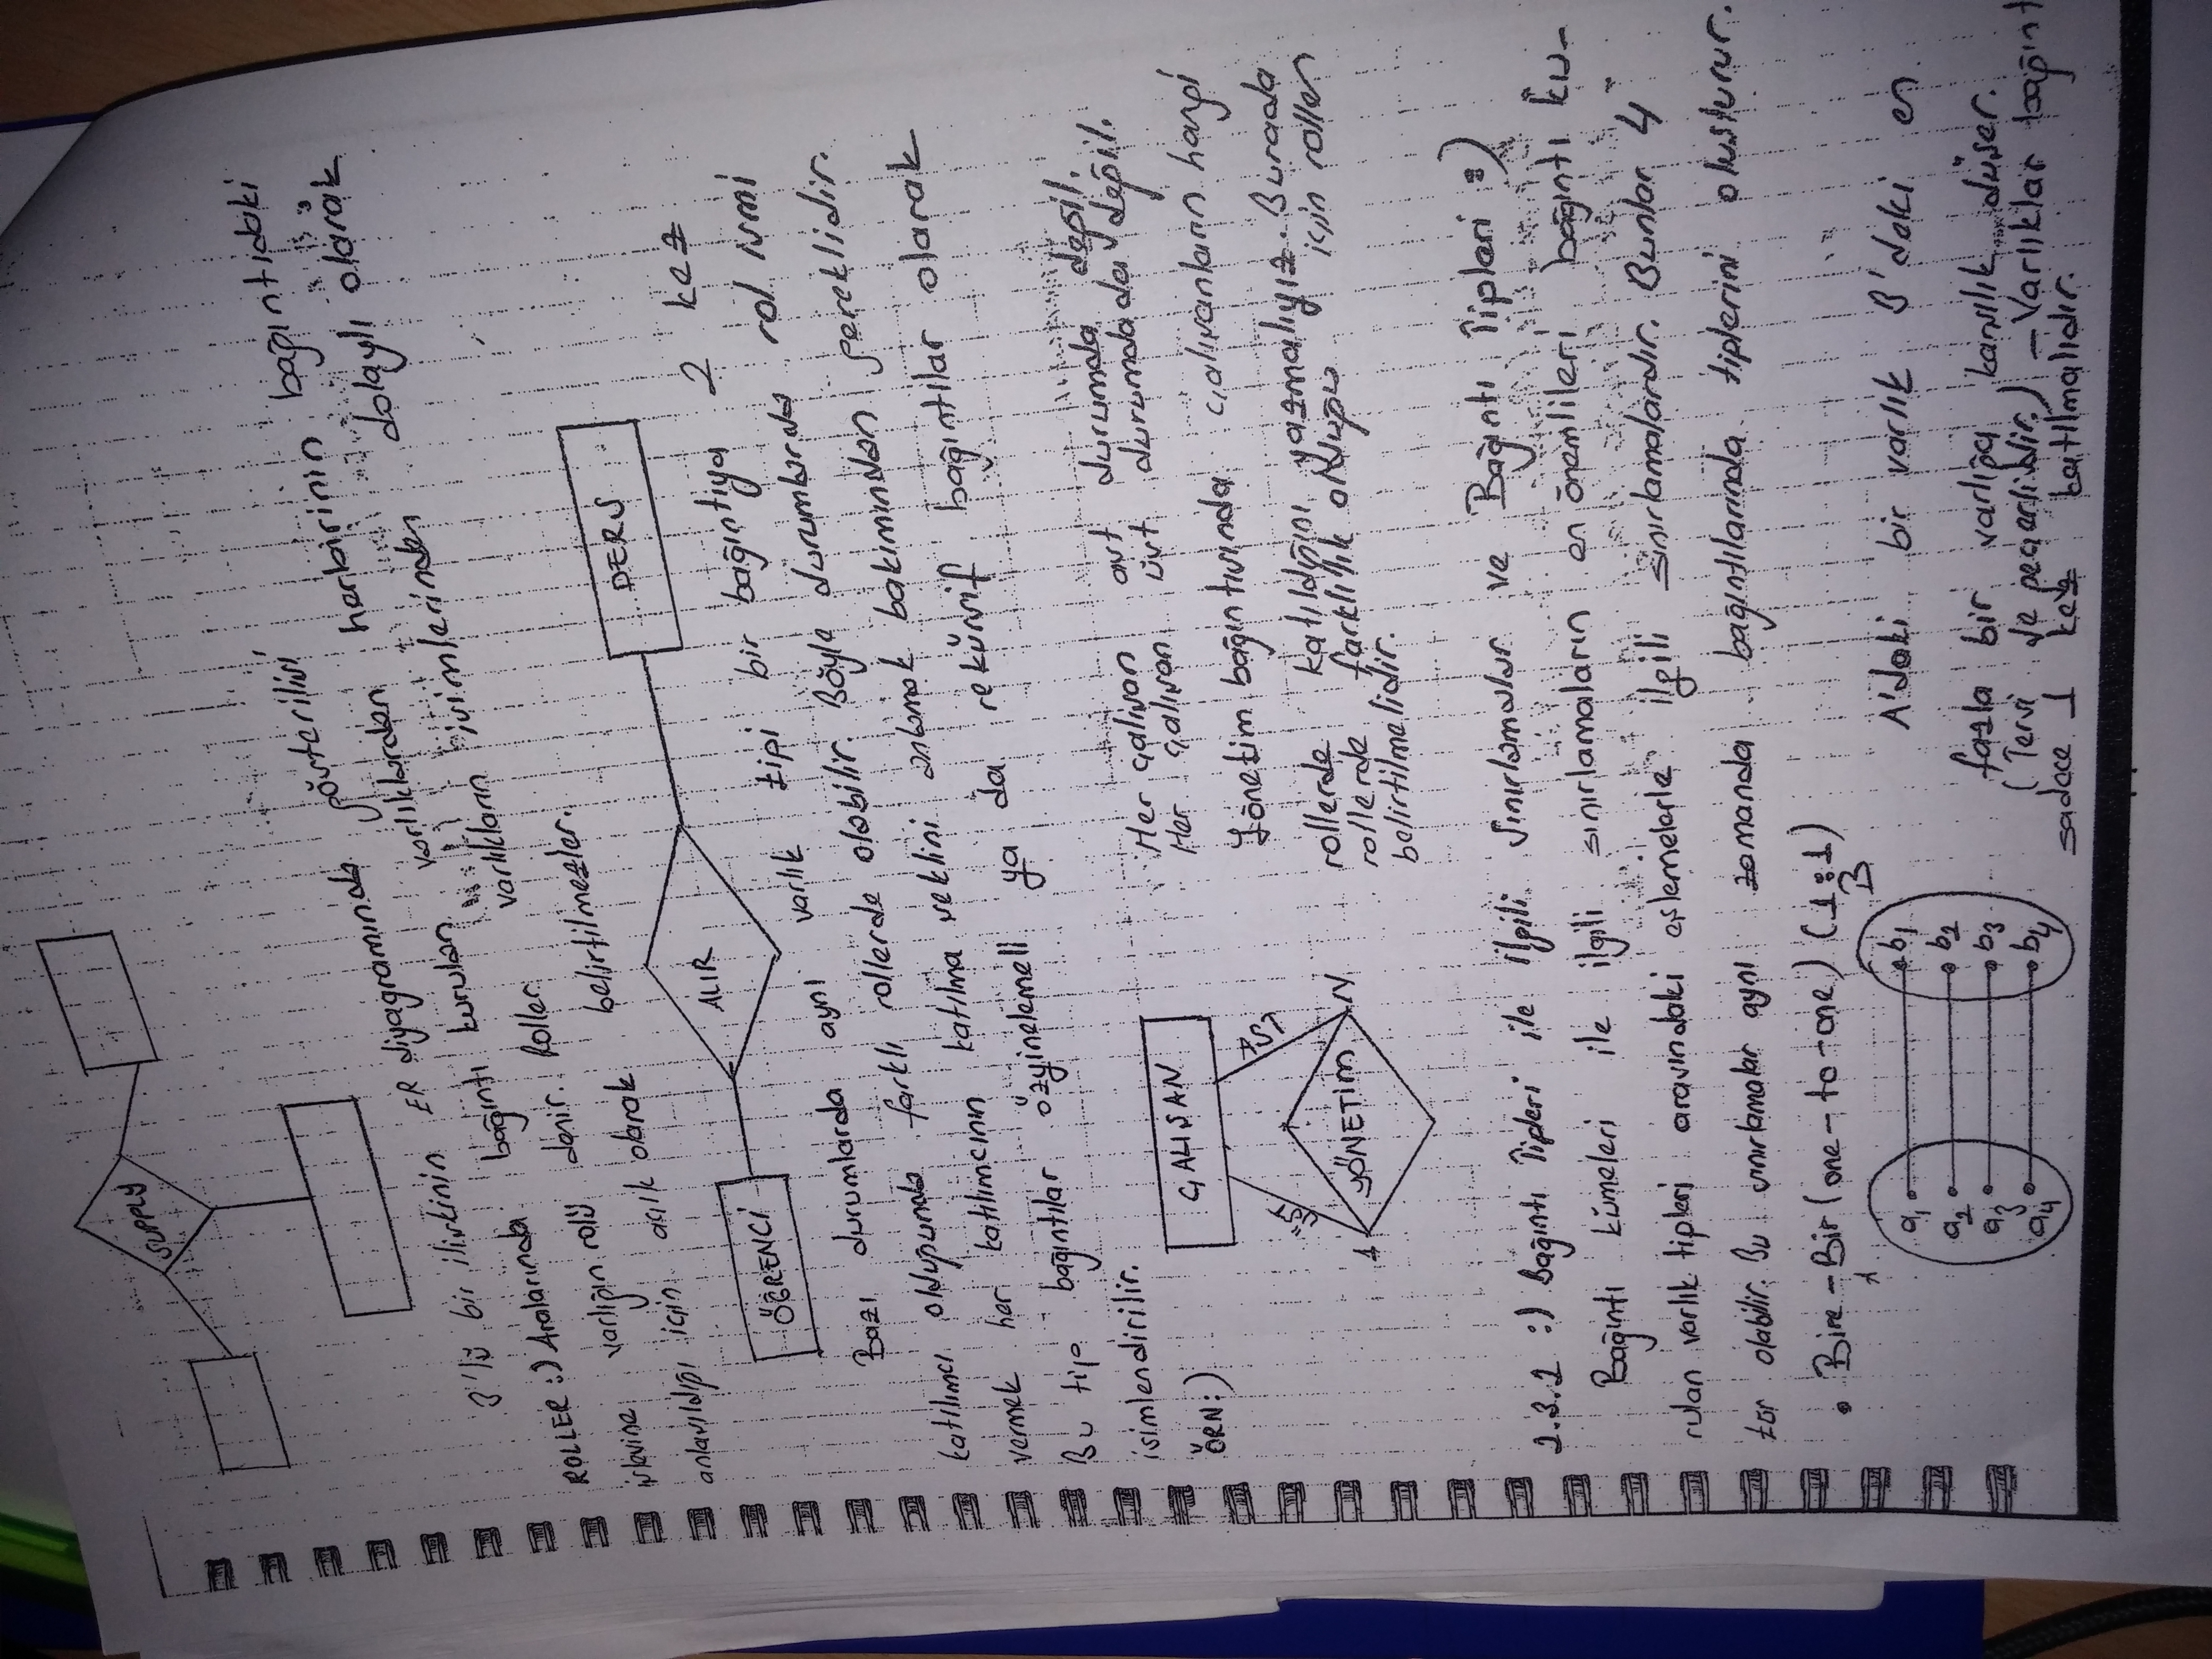 SUPPLY
3'lü bir ilişkinin ER diyagramında gösterilişi
ROLLER :) Aralarında bağıntı kurulan varlıklardan herbirinin bağıntıdaki
işlevine varlığın rolü denir. Roller varlıkların isimlerinden dolaylı olarak
anlaşıldığı için açık olarak belirtilmezler.
ÖĞRENCİ
ALIR
DERS
Bazı durumlarda aynı varlık tipi bir bağıntıya 2 kez
katılımcı olduğunda farklı rollerde olabilir. Böyle durumlarda rol ismi
vermek her katılımcının katılma şeklini anlamak bakımından gereklidir.
Bu tip bağıntılar özyinelemeli ya da rekürsif bağıntılar olarak
isimlendirilir.
ÖRN:)
ÇALIŞAN
üst
ast
1
N
YÖNETİM
Her çalışan ast durumda değil.
Her çalışan üst durumda da değil.
Yönetim bağıntısında çalışanların hangi
rollerde katıldığını yazmalıyız. Burada
rollerde farklılık olduğu için roller
belirtilmelidir.
2.3.2 :) Bağıntı Tipleri ile İlgili Sınırlamalar ve Bağıntı Tipleri :)
Bağıntı kümeleri ile ilgili sınırlamaların en önemlileri bağıntı ku-
rulan varlık tipleri arasındaki eşlemelerle ilgili sınırlamalardır. Bunlar 4
tür olabilir. Bu sınırlamalar aynı zamanda bağıntılarında tiplerini oluşturur.
• Bire-Bir (one-to-one) (1:1)
A
B
a1 b1
a2 b2
a3 b3
a4 b4
A'daki bir varlık B'deki en
fazla bir varlığa karşılık düşer.
(Tersi de geçerlidir) - Varlıklar bağınt
sadece 1 kez katılmalıdır.